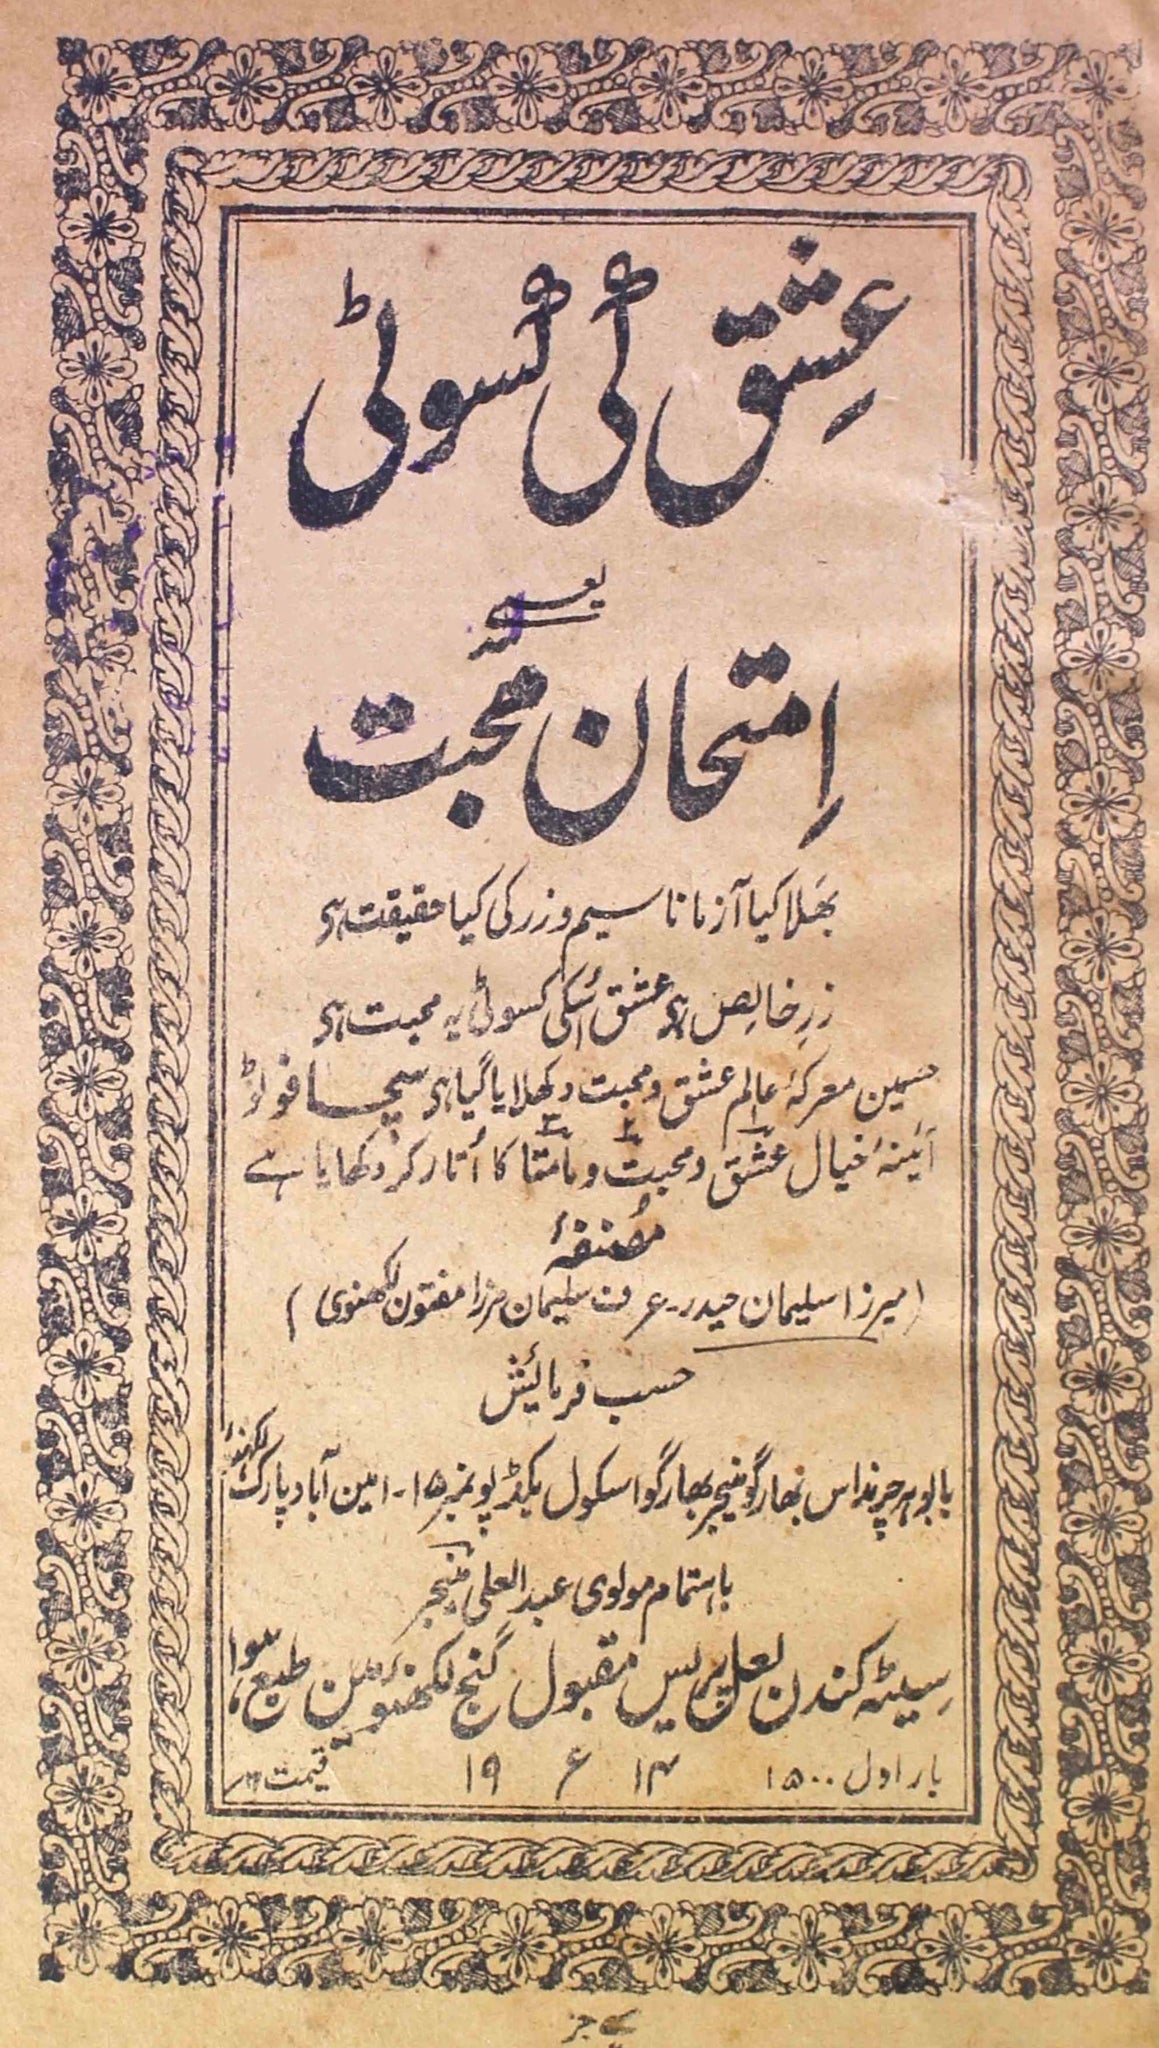 عشق کی کسوٹی
یعنے
اِمتحانِ محبّت
بھَلا کیا آزمانا سیم و زر کی کیا حقیقت ہی
زرِ خالِص ہی عشق اُسکی کسوٹی یہ محبت ہی
جسمین معرکۂ عالم عشق و محبت دِکھلایا گیا ہی سچا فوٹو
آئینۂ خیال عشق و محبت و مامتا کا اُتار کر دکھایا ہے
مصنفۂ
(میرزا سلیمان حیدر۔ عرف سلیمان مرزا مفتون لکھنوی)
حسب فرمائش
بابو ہرچرنداس بھارگو منیجر بھارگو اسکول بکڈپو نمبر ۱۵۔ امین آباد پارک لکھنؤ
باہتمام مولوی عبد العلی منیجر
سیٹھ کندن لعل پریس مقبول گنج لکھنؤ مین طبع ہوا
بار اول ۱۵۰۰ ۱۹۱۴ء قیمت